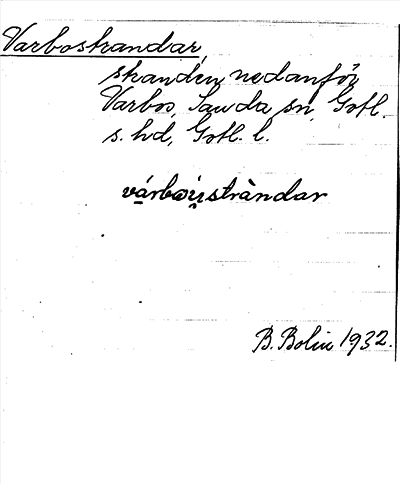 Varbostrandar
stranden nedanför
Varbos, Sanda sn, Gotl.
s. hd, Gotl. l.
várbo̯i̯stràndar
B. Bolin 1932.